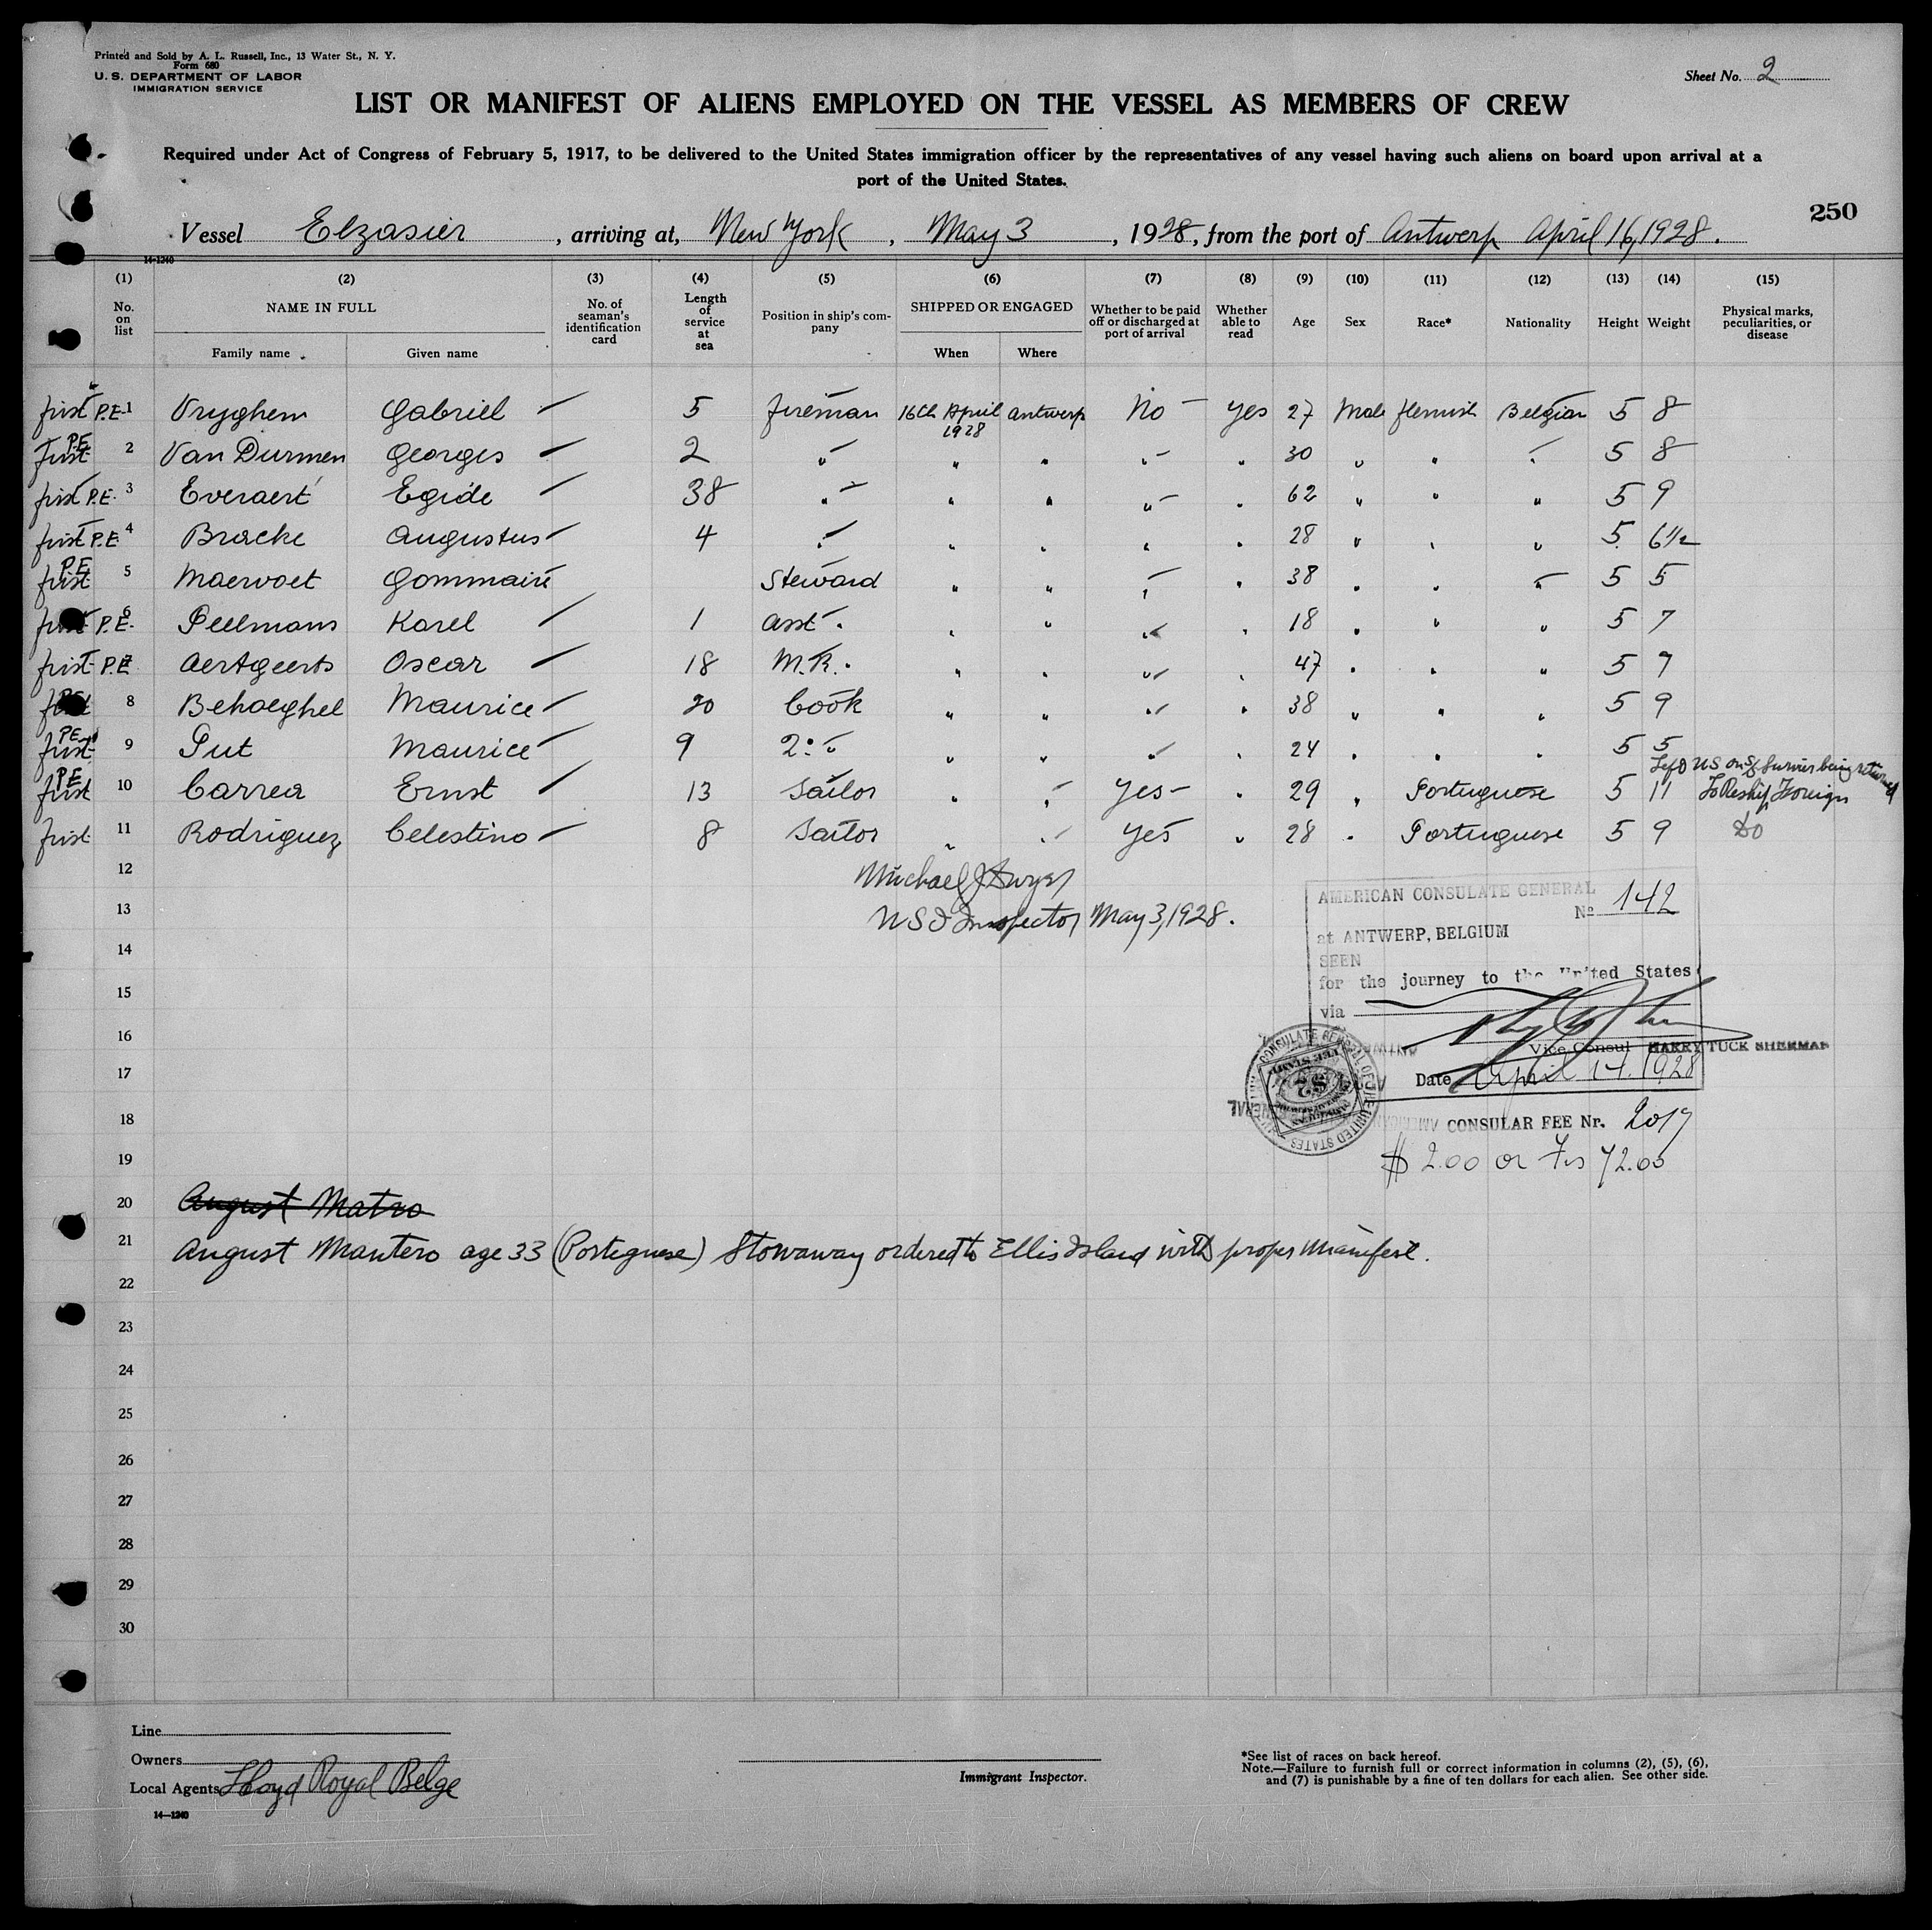 Printed and Sold by A. L. Russell, Inc., 13 Water St., N. Y.
Form 680
U. S. DEPARTMENT OF LABOR
IMMIGRATION SERVICE
Sheet No. 2
LIST OR MANIFEST OF ALIENS EMPLOYED ON THE VESSEL AS MEMBERS OF CREW
Required under Act of Congress of February 5, 1917, to be delivered to the United States immigration officer by the representatives of any vessel having such aliens on board upon arrival at a
port of the United States.
250
Vessel Elzasier, arriving at, New York, May 3, 1928, from the port of Antwerp April 16, 1928.
14-1240
(1) (2) (3) (4) (5) (6) (7) (8) (9) (10) (11) (12) (13) (14) (15)
No. on list NAME IN FULL No. of seaman's identification card Length of service at sea Position in ship's company SHIPPED OR ENGAGED Whether to be paid off or discharged at port of arrival Whether able to read Age Sex Race* Nationality Height Weight Physical marks, peculiarities, or disease
Family name Given name When Where
first P.E. 1 Vryghem Gabriel 5 fireman 16th April 1928 Antwerp No yes 27 Male flemish Belgian 5 8
first P.E. 2 Van Durmen Georges 2 " " " " " 30 " " " 5 8
first P.E. 3 Everaert Egide 38 " " " " " 62 " " " 5 9
first P.E. 4 Bracke Augustus 4 " " " " " 28 " " " 5 6½
first P.E. 5 Maervoet Gommaire Steward " " " " 38 " " " 5 5
first P.E. 6 Peelmans Karel 1 asst " " " " " 18 " " " 5 7
first P.E. 7 Aertgeerts Oscar 18 M.R. " " " " 47 " " " 5 7
first P.E. 8 Behaeghel Maurice 20 Cook " " " " 38 " " " 5 9
first P.E. 9 Put Maurice 9 2° " " " " " 24 " " " 5 5
first P.E. 10 Carrea Ernst 13 Sailor " " yes " 29 " Portuguese 5 11 Left US on SS being returned To Reship Foreign
first 11 Rodriguez Celestino 8 Sailor " " yes " 28 " Portuguese 5 9 Do
12 Michael J Dwyer
13 U S I Inspector May 3, 1928.
14
15
16
17
18
19
AMERICAN CONSULATE GENERAL
No 142
at ANTWERP, BELGIUM
SEEN
for the journey to the United States
via
Vice Consul HARRY TUCK SHERMAN
Date April 14. 1928
CONSULAR FEE Nr. 2017
$ 2.00 or Frs 72.00
20 August Matro
21 August Mantero age 33 (Portuguese) Stowaway ordered to Ellis Island with proper Manifest.
22
23
24
25
26
27
28
29
30
Line
Owners
Local Agents Lloyd Royal Belge
14—1240
Immigrant Inspector.
*See list of races on back hereof.
Note.—Failure to furnish full or correct information in columns (2), (5), (6),
and (7) is punishable by a fine of ten dollars for each alien. See other side.